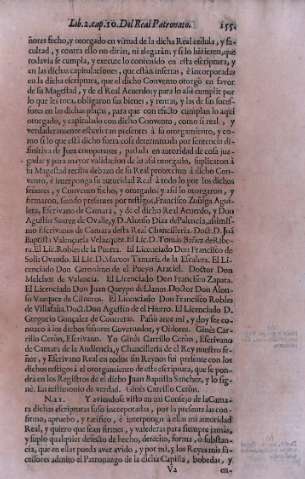 Lib.2. cap.10. Del Real Patronato. 155.
ñores fecho, y otorgado en virtud de dicha Real cedula, y facultad, y contra ello no dirán, ni alegarán; y si lo hizieren, que
todavia se cumpla, y execute lo contenido en esta escritura, y
en las dichas capitulaciones, que están insertas, è incorporadas
en la dicha escritura, que el dicho Convento otorgò en favor
de su Magestad, y de el Real Acuerdo; y para lo assi cumplir por
lo que les toca, obligaron sus bienes, y rentas, y las de sus sucessores
en las dichas plaças, para que con efecto cumplan lo aqui
otorgado, y capitulado con dicho Convento, como si real, y
verdaderamente estuvieran presentes à su otorgamiento, y como
si lo que està dicho fuera cosa determinada por sentencia difinitiva
de Juez competente, passada en autoridad de cosa juzgada;
y para mayor validacion de lo assi otorgado, suplicaron à
su Magestad reciba debaxo de su Real proteccion à dicho Convento,
è interponga su autoridad Real à todo lo por los dichos
señores, y Convento fecho, y otorgado; y assi lo otorgaron, y
firmaron, siendo presentes por testigos Francisco Zuñiga Aguilera,
Escrivano de Camara, y de el dicho Real Acuerdo, y Don
Agustin Suarez de Ovalle, y D. Alonso Diaz de Palencia, assimismo
Escrivanos de Camara desta Real Chancilleria. Doct. D. Juan
Baptista Valenzuela Velazquez. El Lic. D. Tomàs
El Lic. Robles de la Puerta. El Licenciado Don Francisco de
Solis Ovando. El Lic. D. Marcos Tamariz de la Escalera. El Licenciado
Don Geronimo de el Pueyo Araciel. Doctor Don
Melchor de Valencia. El Licenciado Don Francisco Zapata.
El Licenciado Don Juan Queypo de Llanos. Doctor Don Alonso
Vazquez de Cisneros. El Licenciado Don Francisco Robles
de Villafaña. Doct. Don Agustin de el Hierro. El Licenciado D.
Gregorio Gonçalez de Contreras. Passò ante mi, y doy fee conozco
à los dichos señores Governador, y Oidores. Ginès Carrillo
Ceron, Escrivano. Yo Ginès Carrillo Ceron, Escrivano
de Camara de la Audiencia, y Chancilleria de el Rey nuestro señor,
y Escrivano Real en todos sus Reynos fui presente con los
dichos testigos à el otorgamiento de esta escritura, que se pondrà
en los Registros de el dicho Juan Baptista Sanchez, y lo signè.
En testimonio de verdad. Ginès Carrillo Ceron.
N.21. Y aviendose visto en mi Consejo de la Camara
dichas escrituras suso incorporadas, por la presente las confirmo,
apruebo, y ratifico, è interpongo à ellas mi autoridad
Real, y quiero que sean firmes, y valederas para siempre jamàs,
y suplo qualquier defecto de hecho, derecho, forma, ò substancia,
que en ellas pueda aver avido, y por mi, y los Reyes mis sucessores
admito el Patronazgo de la dicha Capilla, bobedas, y
Va en-